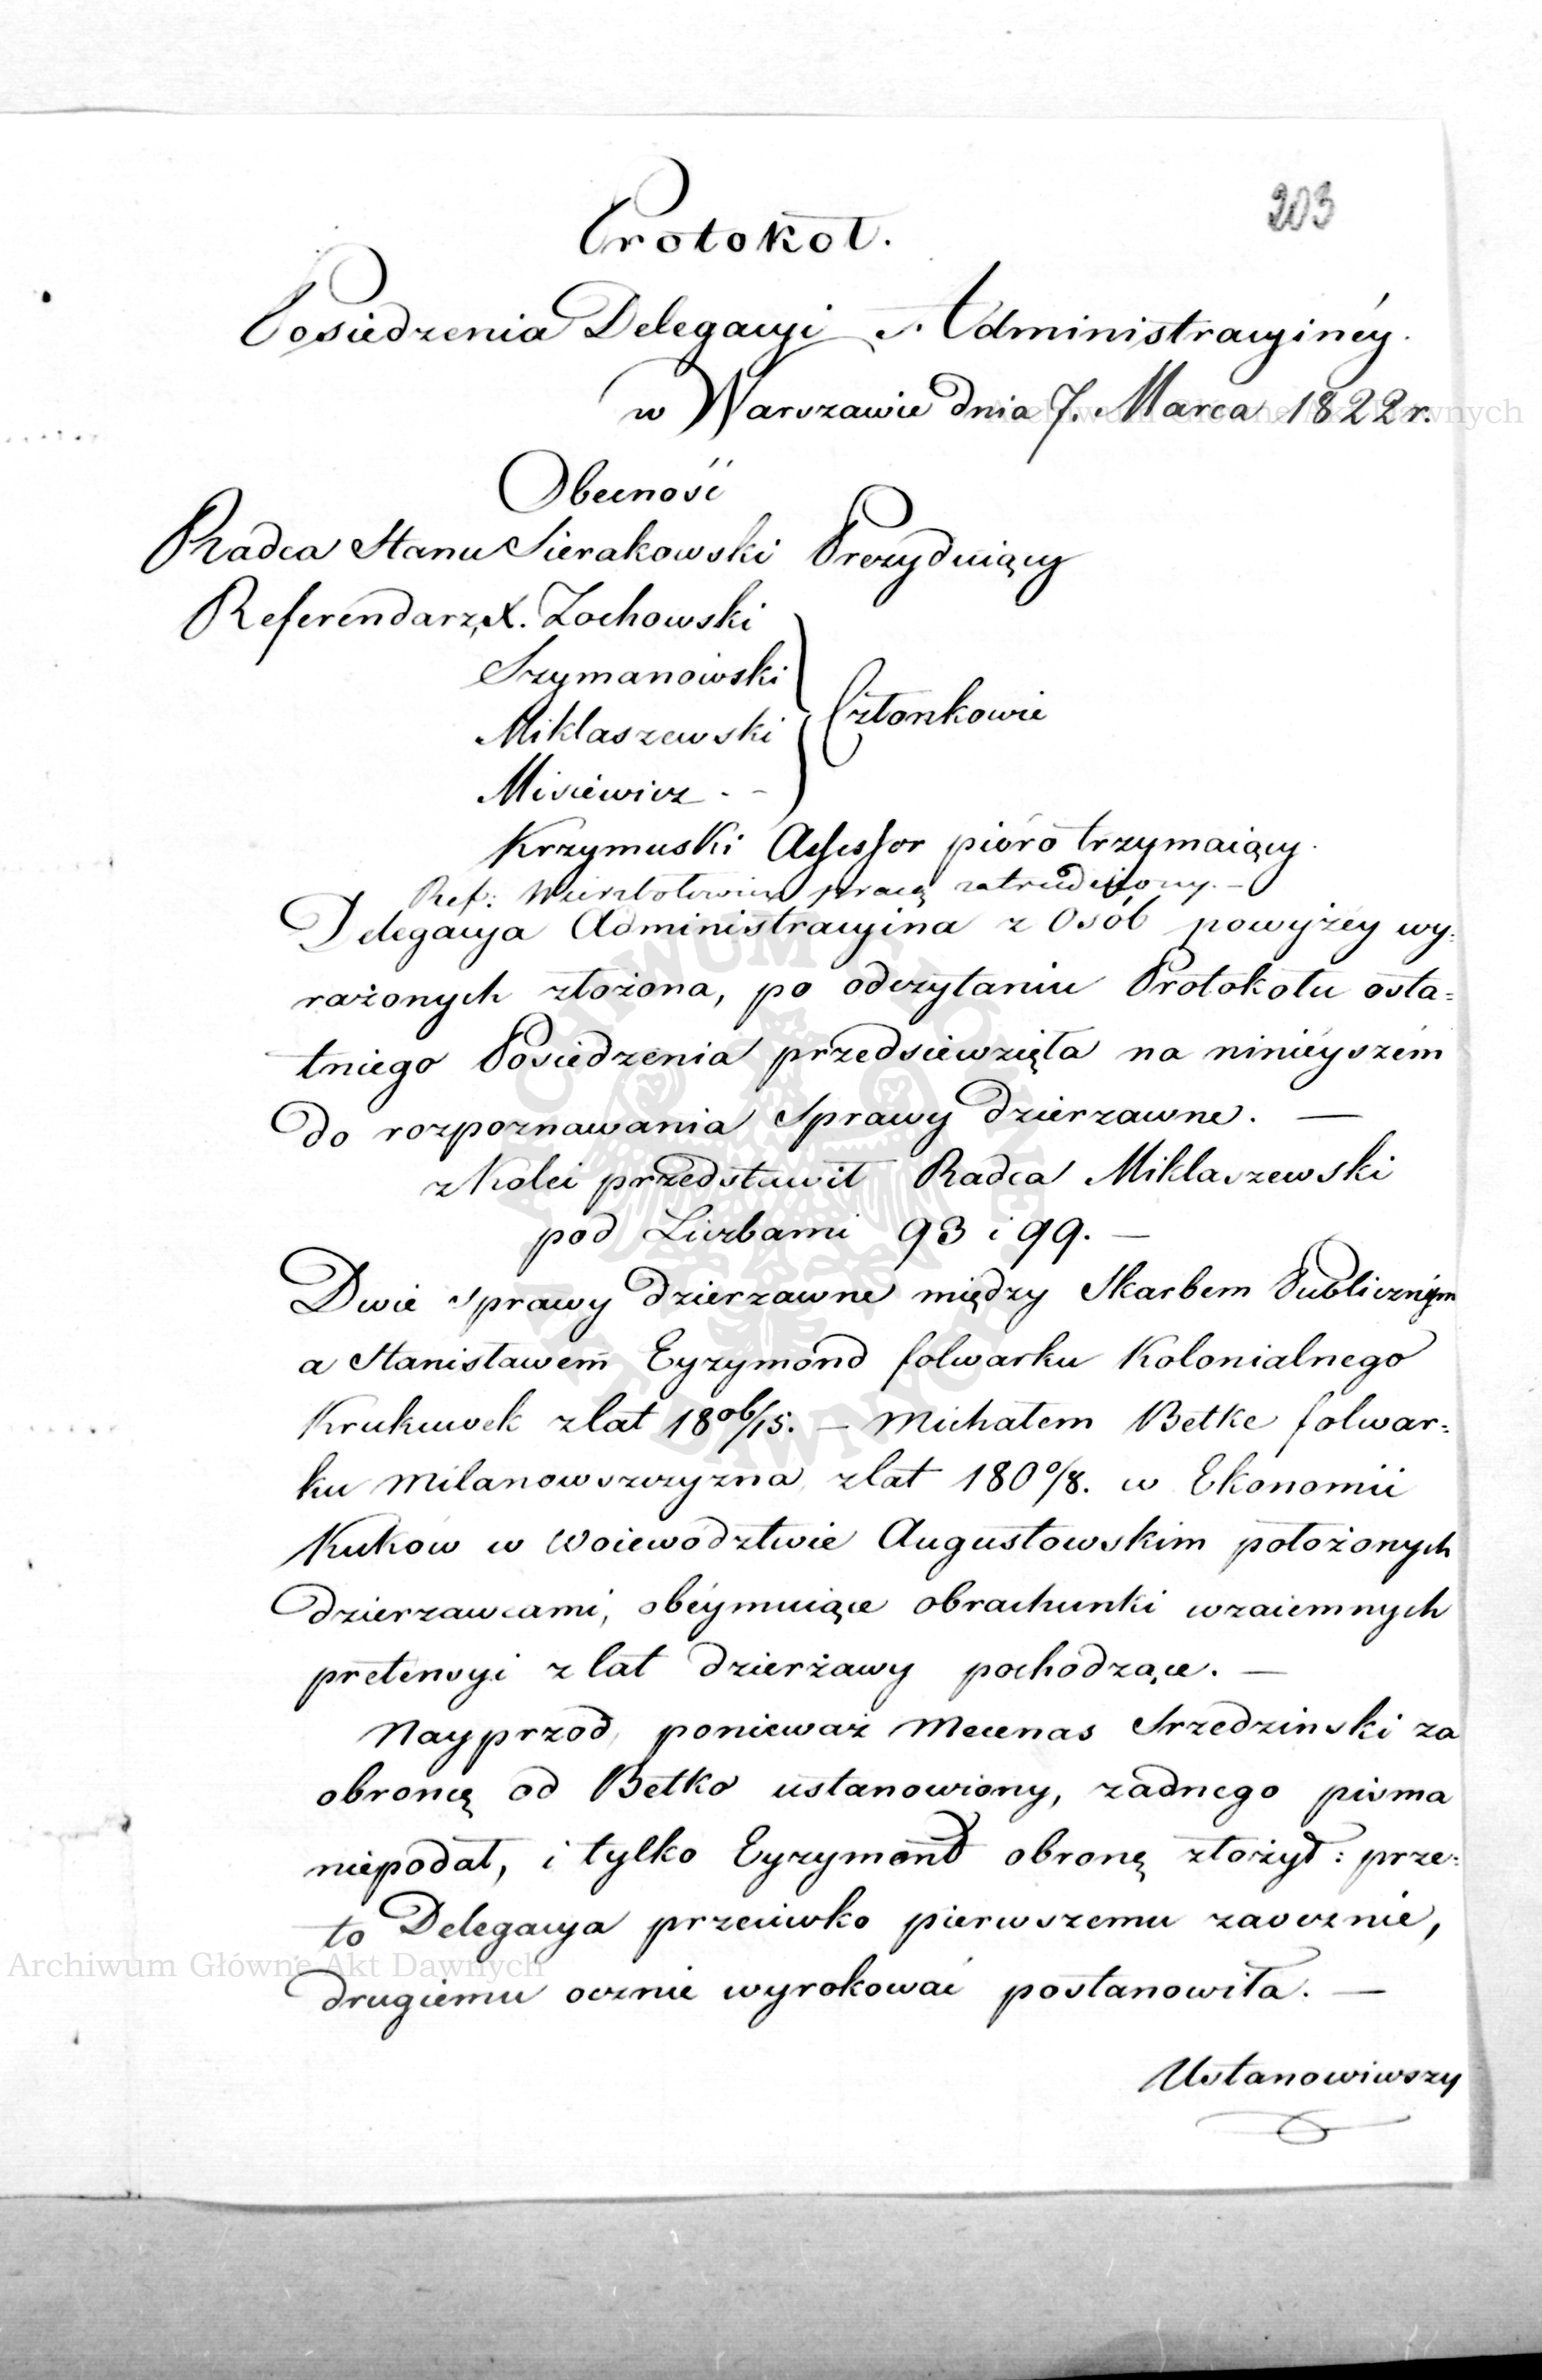 203
Protokoł.
Posiedzenia Delegacyi Administracyinéy.
w Warszawie dnia 7. Marca 1822 r.
Obecność
Radca Stanu Sierakowski Prezyduiący
Referendarz, X. Zochowski
Szymanowski
Miklaszewski
Członkowie
Misiewicz. -
Krzymuski Assessor pióro trzymaiący.
Ref: Wierzbołowicz pracą zatrudniony. -
Delegacya Administracyina z Osób powyżéy wy:
rażonych złożona, po odczytaniu Protokołu osta=
tniego Posiedzenia przedsiewzięła na ninieyszém
do rozpoznawania Sprawy dzierzawne. —
z Kolei przedstawił Radca Miklaszewski
pod Liczbami 93 i 99. —
Dwie sprawy dzierzawne między Skarbem Publicznym
a Stanisławem Eyzymond folwarku Kolonialnego
Krukiwek z lat 1806/15. — Michałem Betke folwar:
ku Milanowszczyzna z lat 180 0/8. w Ekonomii
Kuków w Woiewodztwie Augustowskim położonych
dzierzawcami, obéymuiące obrachunki wzaiemnych
pretensyi z lat dzierżawy pochodzące. —
Nayprzód, ponieważ Mecenas Srzedzinski za
obroncę od Betko ustanowiony, zadnego pisma
niepodał, i tylko Eyzymond obronę złożył: prze:
to Delegacya przeciwko pierwszemu zaocznie,
drugiemu ocznie wyrokować postanowiła. —
Ustanowiwszy
Archiwum Główne Akt Dawnych
Archiwum Główne Akt Dawnych
ARCHIWUM GŁÓWNE AKT DAWNYCH